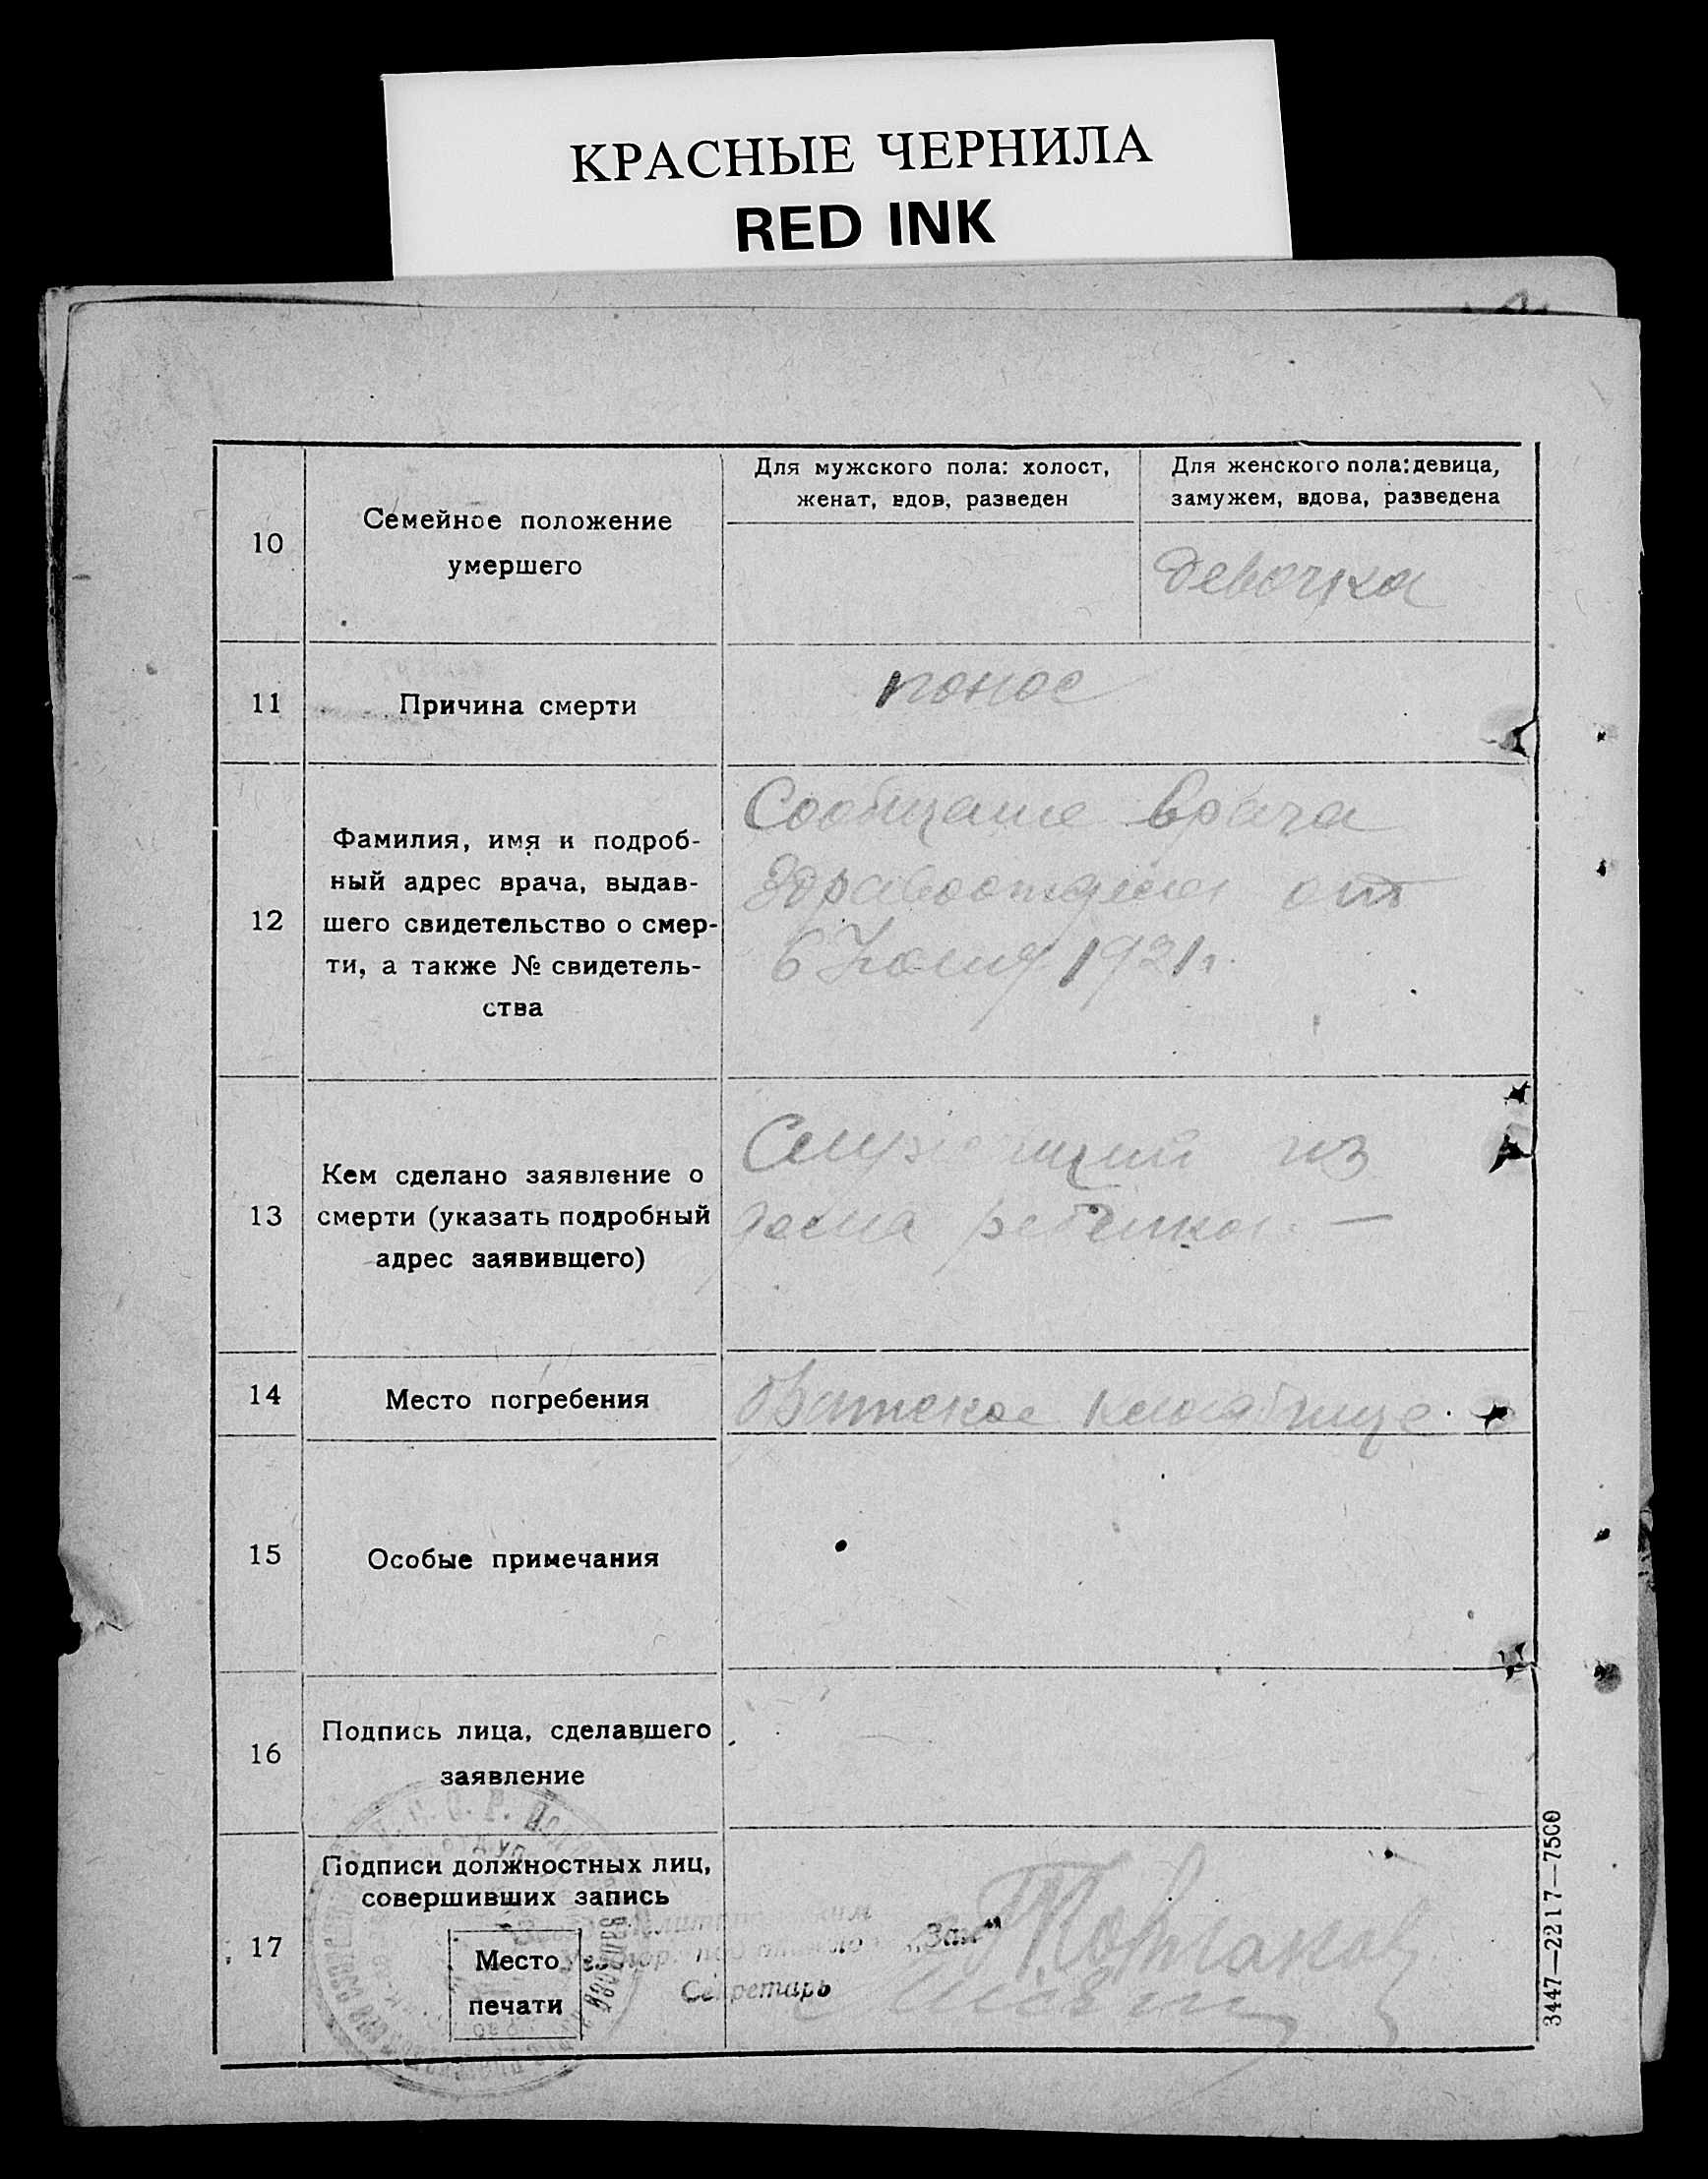 КРАСНЫЕ ЧЕРНИЛА
RED INK
10
Семейное положение
умершего
Для мужского пола: холост,
женат, вдов, разведен
Для женского пола: девица,
замужем, вдова, разведена
девочка
11
Причина смерти
понос
12
Фамилия, имя и подроб-
ный адрес врача, выдав-
шего свидетельство о смер-
ти, а также № свидетель-
ства
врача
от
6 1921г.
13
Кем сделано заявление о
смерти (указать подробный
адрес заявившего)
Служащий из
дома ребенка. —
14
Место погребения
кладбище.
15
Особые примечания
16
Подпись лица, сделавшего
заявление
17
Подписи должностных лиц,
совершивших запись
Место
печати
„Зав“
Секретарь
3447—2217—7500